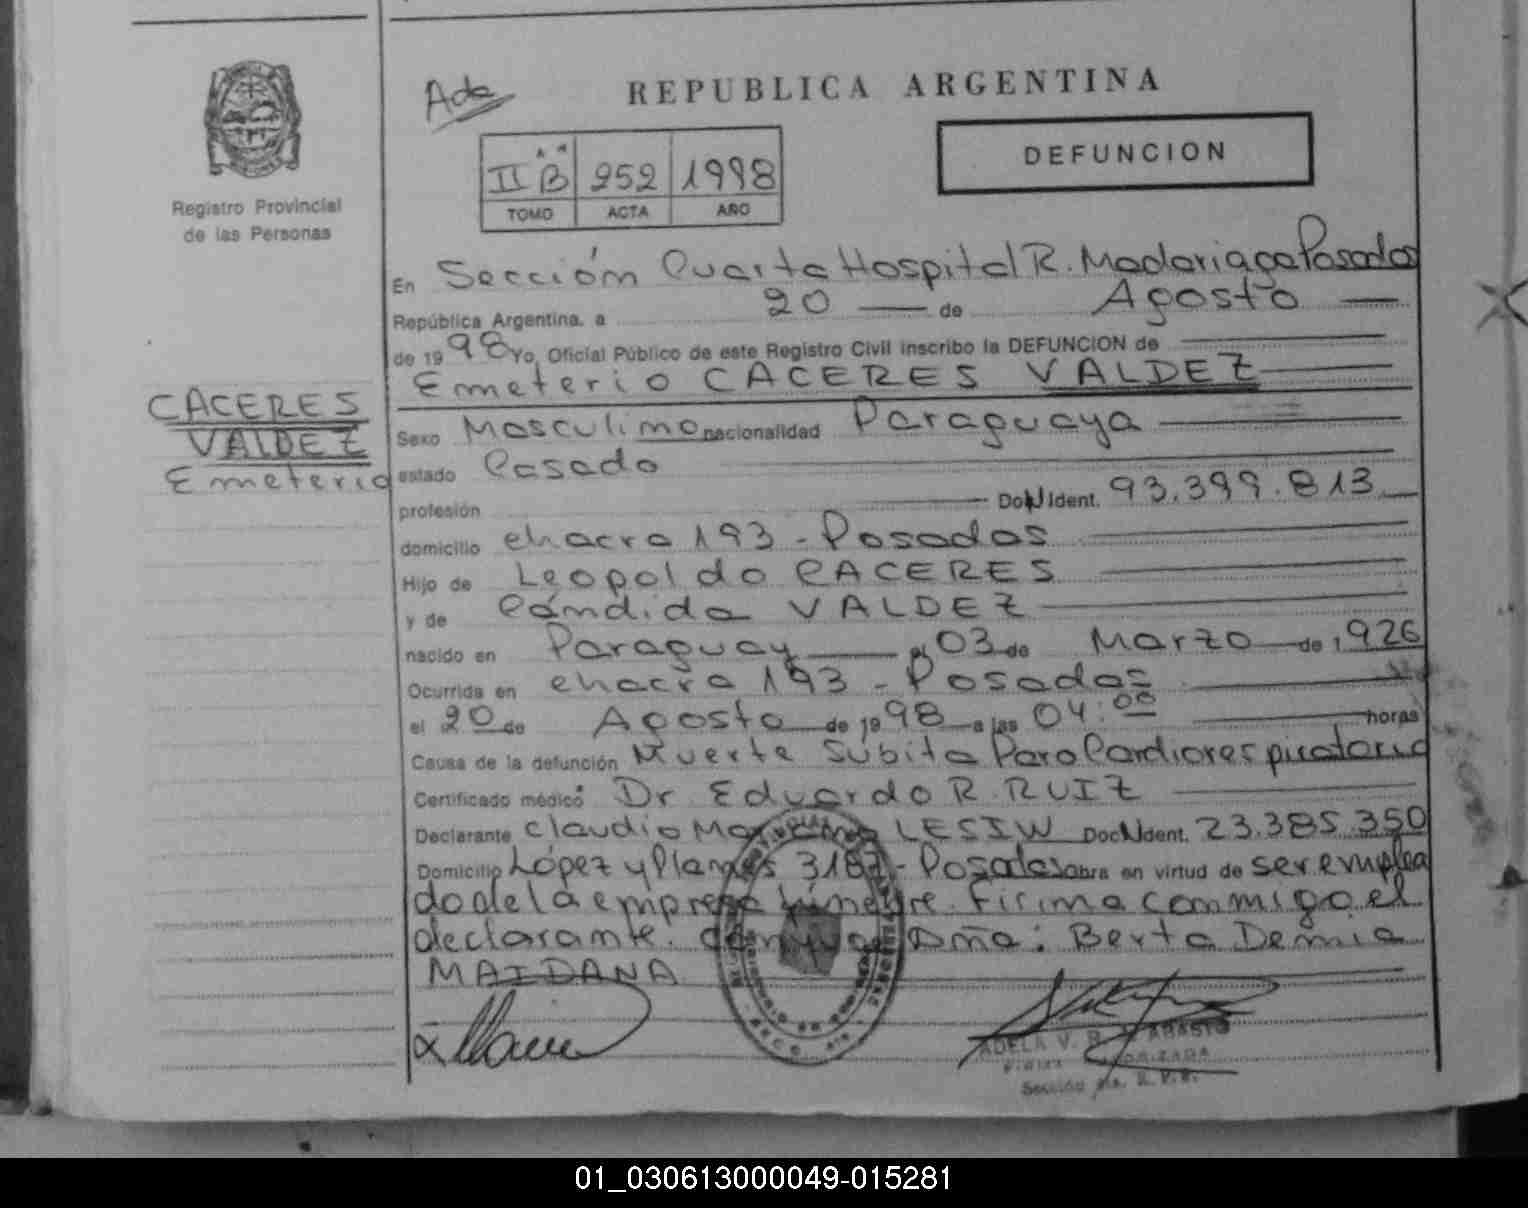 REPUBLICA ARGENTINA
DEFUNCION
II B 252 1998
TOMO ACTA AÑO
Registro Provincial
de las Personas
En Sección Cuarta Hospital R. Madariaga Posadas
República Argentina, a 20 de Agosto
de 1998 Yo, Oficial Público de este Registro Civil inscribo la DEFUNCION de
Emeterio CACERES VALDEZ
CACERES
VALDEZ
Emeterio
Sexo Masculino nacionalidad Paraguaya
estado Casado
profesión Doc N Ident. 93.399.813
domicilio chacra 193 - Posadas
Hijo de Leopoldo CACERES
y de Cándida VALDEZ
nacido en Paraguay el 03 de Marzo de 1926
Ocurrida en chacra 193 - Posadas
el 20 de Agosto de 1998 a las 04:00 horas
Causa de la defunción Muerte Subita Paro Cardiorespiratorio
Certificado médico Dr. Eduardo R. RUIZ
Declarante Claudio LESIW Doc N Ident. 23.385.350
Domicilio López y Planes 3187 - Posadas obra en virtud de ser emplea
do de la empresa fúnebre. Firma conmigo el
declarante. Cónyuge Dña: Berta Demia
MAIDANA
ADELA V.
Sección 4ta. R. P. P.
01_030613000049-015281